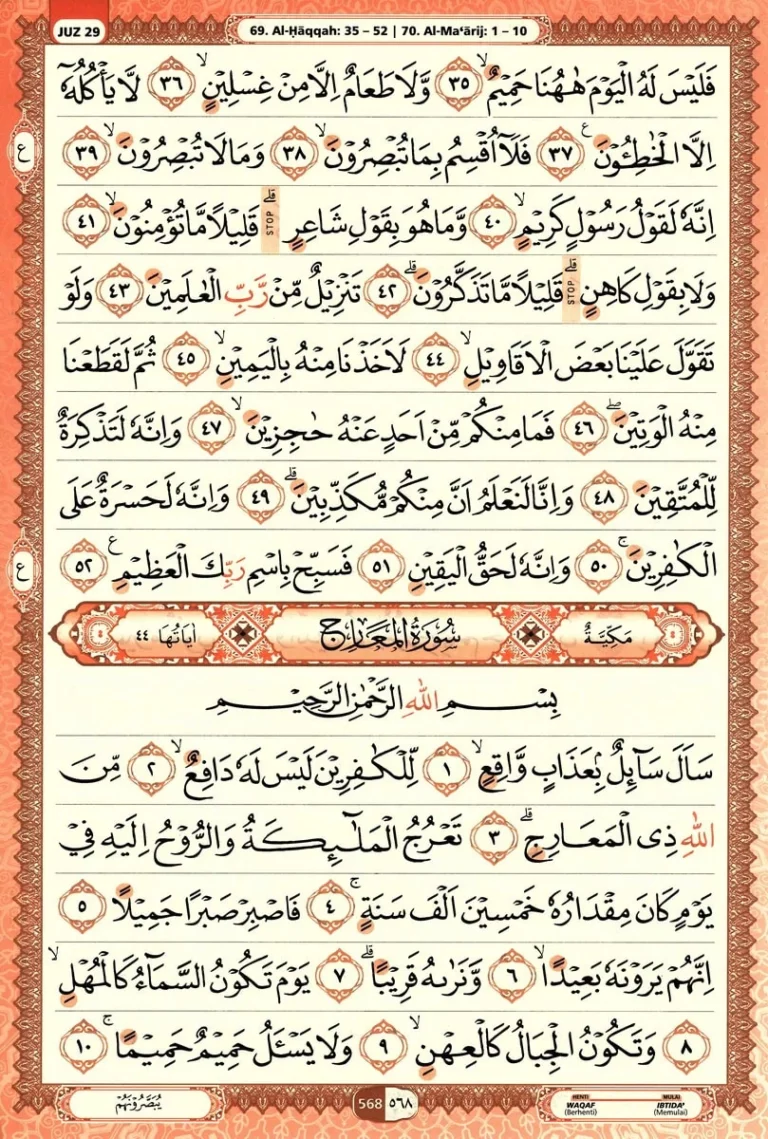 JUZ 29
69. Al-Ḥāqqah: 35 – 52 | 70. Al-Ma‘ārij: 1 – 10
فَلَيْسَ لَهُ الْيَوْمَ هٰهُنَا حَمِيْمٌۙ ٣٥ وَّلَا طَعَامٌ اِلَّا مِنْ غِسْلِيْنٍۙ ٣٦ لَّا يَأْكُلُهٗٓ
اِلَّا الْخٰطِـُٔوْنَ ࣖ ٣٧ فَلَآ اُقْسِمُ بِمَا تُبْصِرُوْنَۙ ٣٨ وَمَا لَا تُبْصِرُوْنَۙ ٣٩
اِنَّهٗ لَقَوْلُ رَسُوْلٍ كَرِيْمٍۙ ٤٠ وَّمَا هُوَ بِقَوْلِ شَاعِرٍۗ STOP قَلِيْلًا مَّا تُؤْمِنُوْنَۙ ٤١
وَلَا بِقَوْلِ كَاهِنٍۗ STOP قَلِيْلًا مَّا تَذَكَّرُوْنَۗ ٤٢ تَنْزِيْلٌ مِّنْ رَّبِّ الْعٰلَمِيْنَ ٤٣ وَلَوْ
تَقَوَّلَ عَلَيْنَا بَعْضَ الْاَقَاوِيْلِۙ ٤٤ لَاَخَذْنَا مِنْهُ بِالْيَمِيْنِۙ ٤٥ ثُمَّ لَقَطَعْنَا
مِنْهُ الْوَتِيْنَۖ ٤٦ فَمَا مِنْكُمْ مِّنْ اَحَدٍ عَنْهُ حٰجِزِيْنَۙ ٤٧ وَاِنَّهٗ لَتَذْكِرَةٌ
لِّلْمُتَّقِيْنَ ٤٨ وَاِنَّا لَنَعْلَمُ اَنَّ مِنْكُمْ مُّكَذِّبِيْنَۗ ٤٩ وَاِنَّهٗ لَحَسْرَةٌ عَلَى
الْكٰفِرِيْنَۚ ٥٠ وَاِنَّهٗ لَحَقُّ الْيَقِيْنِ ٥١ فَسَبِّحْ بِاسْمِ رَبِّكَ الْعَظِيْمِ ࣖ ٥٢
ع
ع
مَكِّيَّةٌ سُوْرَةُ الْمَعَارِجِ اٰيَاتُهَا ٤٤
بِسْمِ اللّٰهِ الرَّحْمٰنِ الرَّحِيْمِ
سَاَلَ سَاۤىِٕلٌۢ بِعَذَابٍ وَّاقِعٍۙ ١ لِّلْكٰفِرِيْنَ لَيْسَ لَهٗ دَافِعٌۙ ٢ مِّنَ
اللّٰهِ ذِى الْمَعَارِجِۗ ٣ تَعْرُجُ الْمَلٰۤىِٕكَةُ وَالرُّوْحُ اِلَيْهِ فِيْ
يَوْمٍ كَانَ مِقْدَارُهٗ خَمْسِيْنَ اَلْفَ سَنَةٍۚ ٤ فَاصْبِرْ صَبْرًا جَمِيْلًا ٥
اِنَّهُمْ يَرَوْنَهٗ بَعِيْدًاۙ ٦ وَّنَرٰىهُ قَرِيْبًاۗ ٧ يَوْمَ تَكُوْنُ السَّمَاۤءُ كَالْمُهْلِۙ
٨ وَتَكُوْنُ الْجِبَالُ كَالْعِهْنِۙ ٩ وَلَا يَسْـَٔلُ حَمِيْمٌ حَمِيْمًاۚ ١٠
يُبَصَّرُوْنَهُمْ
568 ٥٦٨
HENTI WAQAF (Berhenti)
MULAI IBTIDA' (Memulai)